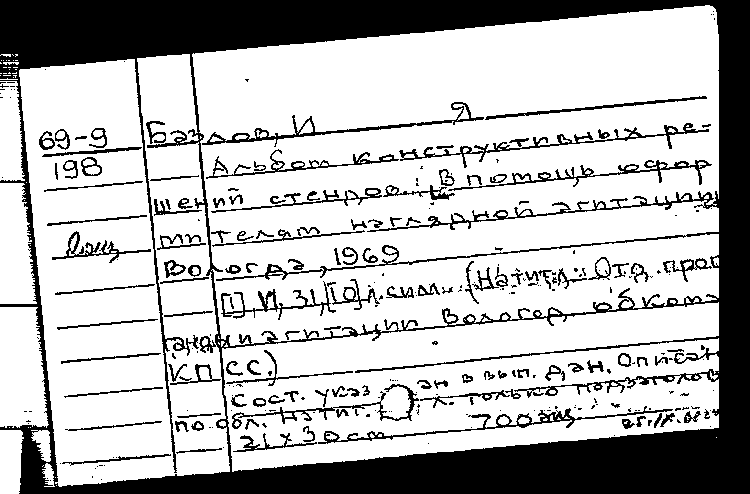 69-9 Базлов, И Я
198 Альбом конструктивных ре-
шений стендов. : В помощь офор
мителям наглядной агитации
Вологда, 1969
[1], VI, 31, [10] л. илл. (На тит. л.: Отд. проп
ганды и агитации Волог. обкома
КПСС.)
Сост. указ ан в вып. дан. Описан
по обл. На тит. л. только подзаголов
21 х 30 см. 700 экз.